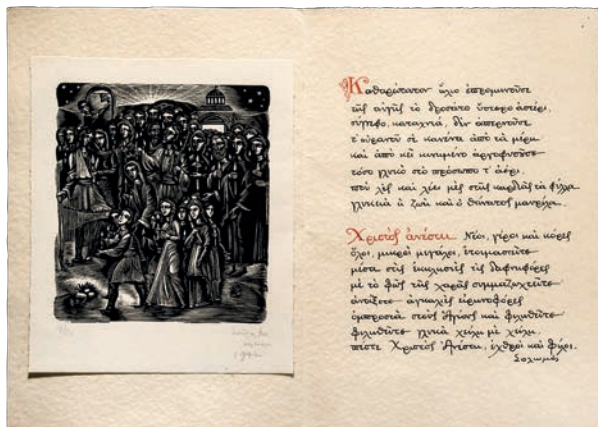 Καθαρώτατον ἥλιο ἐπρομηνοῦσε
τῆς αὐγῆς τὸ δροσάτο ὕστερο ἀστέρι,
σύγνεφο, καταχνιά, δὲν ἀπερνοῦσε
τ' οὐρανοῦ σὲ κανένα ἀπὸ τὰ μέρη
καὶ ἀπὸ κεῖ κινημένο ἀργοφυσοῦσε
τόσο γλυκὸ στὸ πρόσωπο τ' ἀέρι,
ποὺ λὲς καὶ λέει μὲς στῆς καρδιᾶς τὰ φύλλα
γλυκειὰ ἡ ζωὴ καὶ ὁ θάνατος μαυρίλα.
Χριστὸς ἀνέστη. Νέοι, γέροι καὶ κόρες
ὅλοι, μικροί μεγάλοι, ἑτοιμαστεῖτε
μέσα στὶς ἐκκλησιὲς τὶς δαφνοφόρες
μὲ τὸ φῶς τῆς χαρᾶς συμμαζωχτεῖτε
ἀνοίξετε ἀγκαλιὲς εἰρηνοφόρες
ὀμπροστὰ στοὺς Ἁγίους καὶ φιληθεῖτε
φιληθεῖτε γλυκὰ χείλη μὲ χείλη,
πέστε Χριστὸς Ἀνέστη, ἐχθροὶ καὶ φίλοι.
Σολωμός